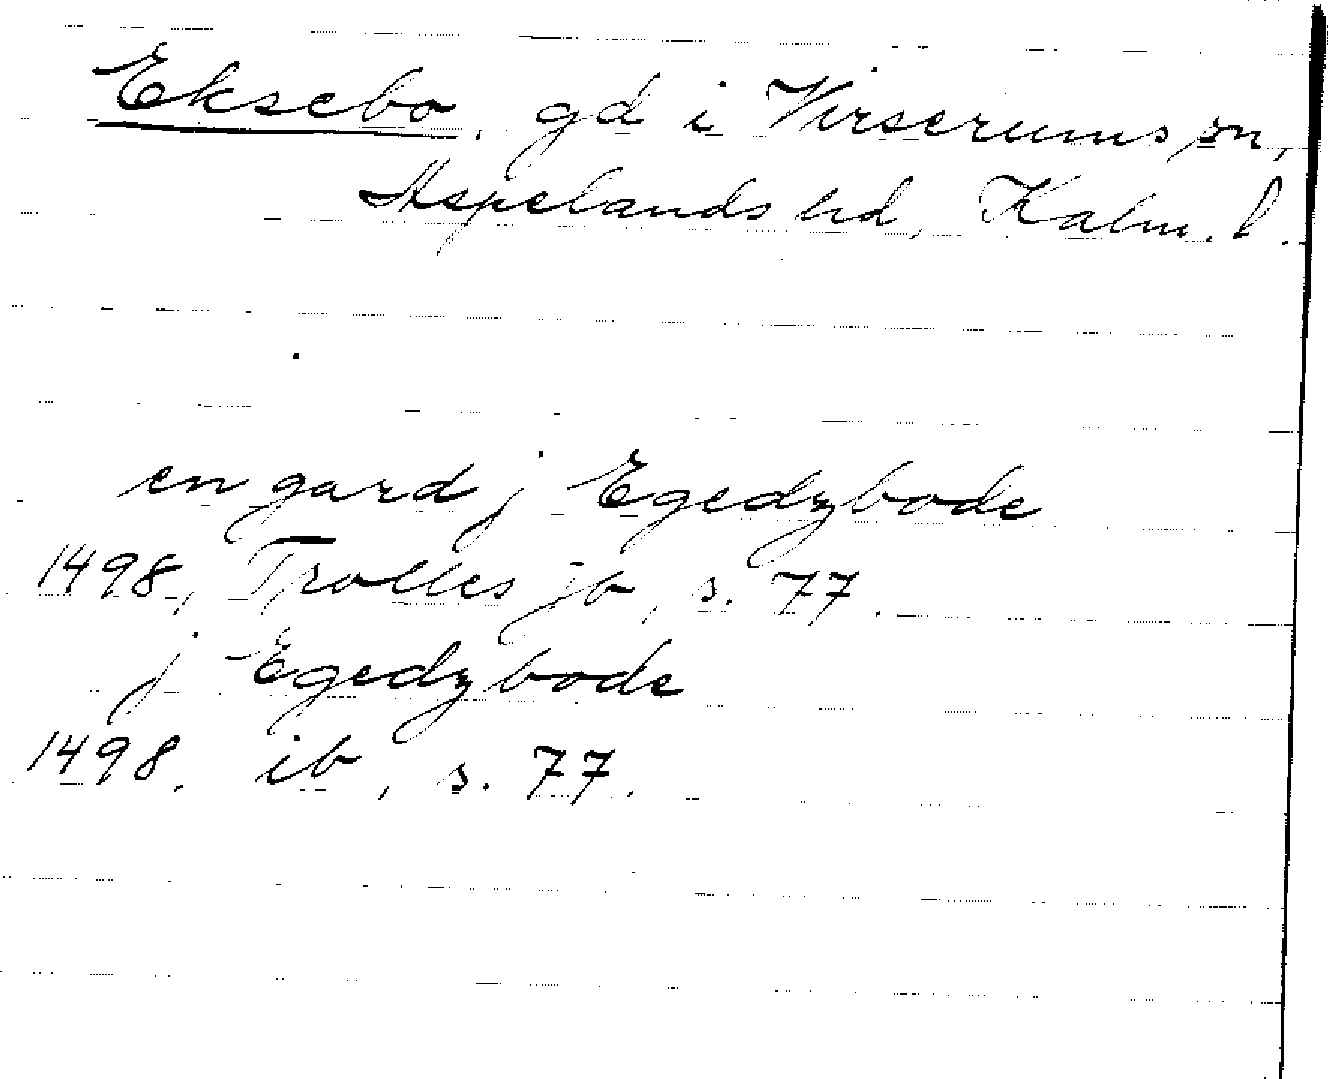 Eksebo, gd i Virserums sn,
Aspelands hd, Kalm. l.
en gard j Egedzbode
1498, Trolles jb, s. 77.
j Egedzbode
1498. ib, s. 77.